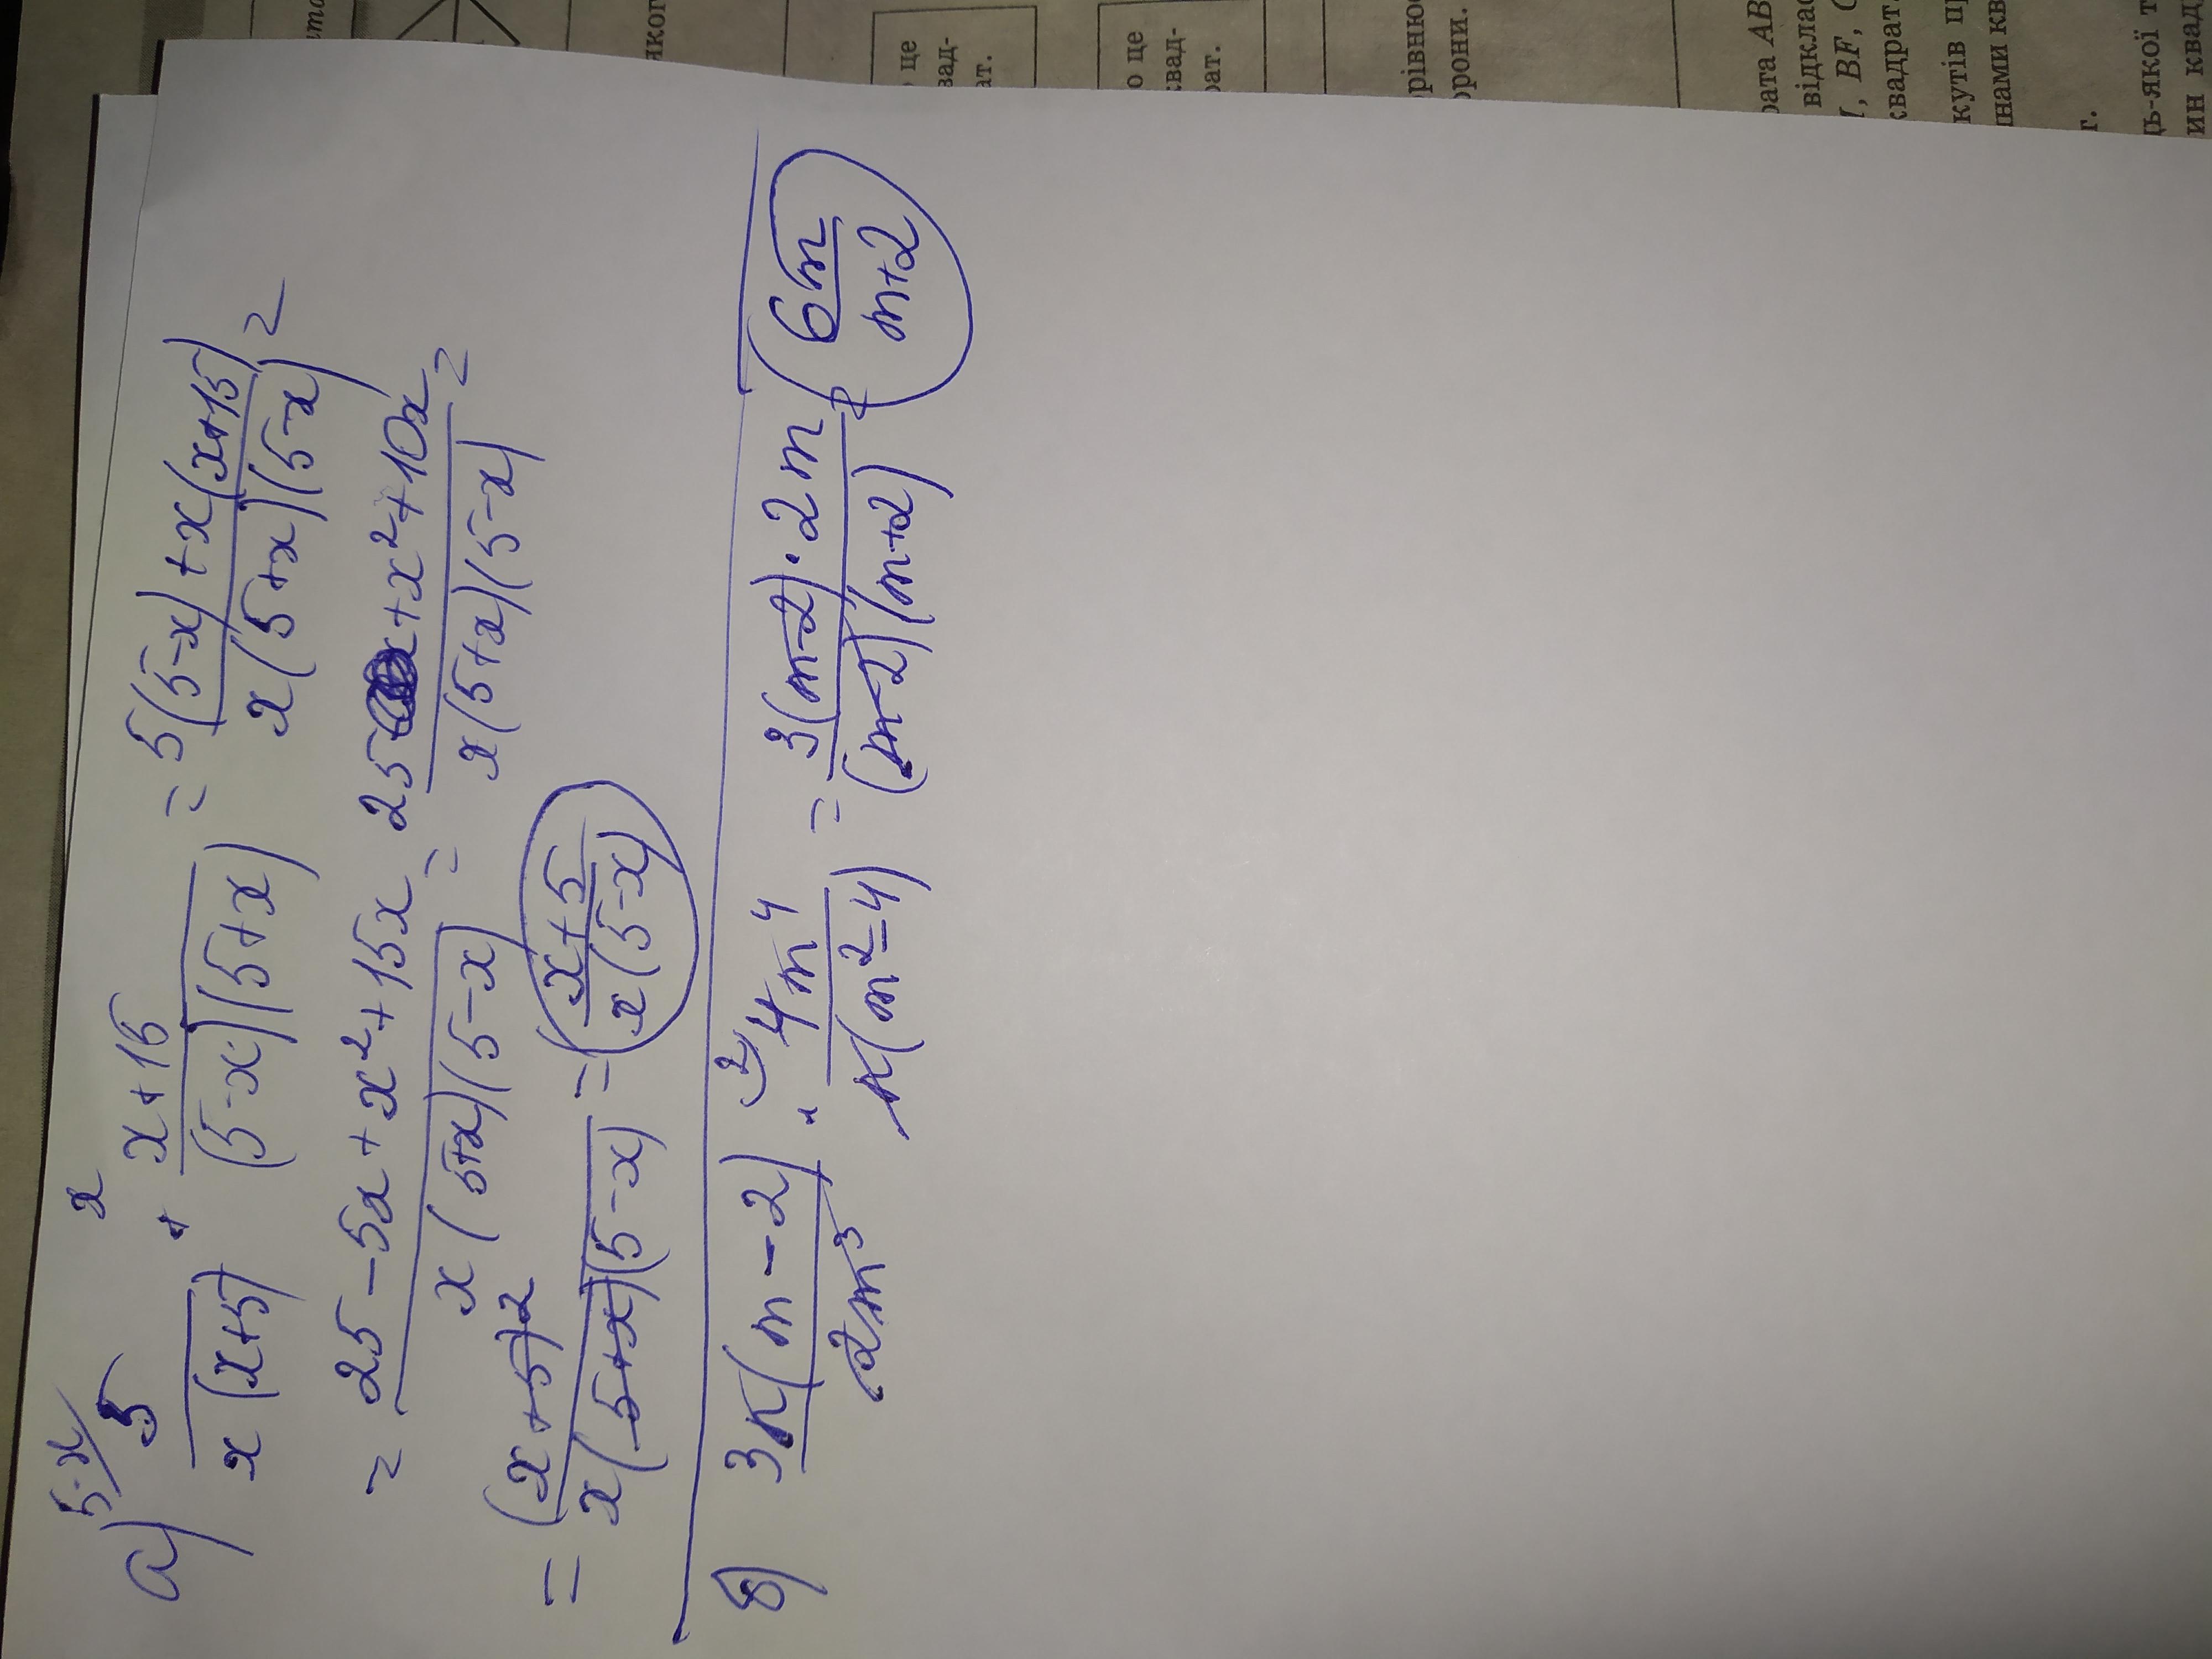 а) 5-x/ 5/(x(x+5)) + x/ (x+15)/((5-x)(5+x)) = (5(5-x)+x(x+15))/(x(5+x)(5-x)) =
= (25-5x+x²+15x)/(x(5+x)(5-x)) = (25+x²+10x)/(x(5+x)(5-x)) =
= (x+5)²/(x(5+x)(5-x)) = (x+5)/(x(5-x))
б) 3к(m-2)/(2m³) · 4m⁴/(к(m²-4)) = (3(m-2)·2m)/((m-2)(m+2)) = 6m/(m+2)
о це
вад-
ат.
о це
квад-
рат.
рівню
рони.
рата AB
відкла
, BF,
квадрат
кутів п
нами кв
г.
ь-якої т
ин квад